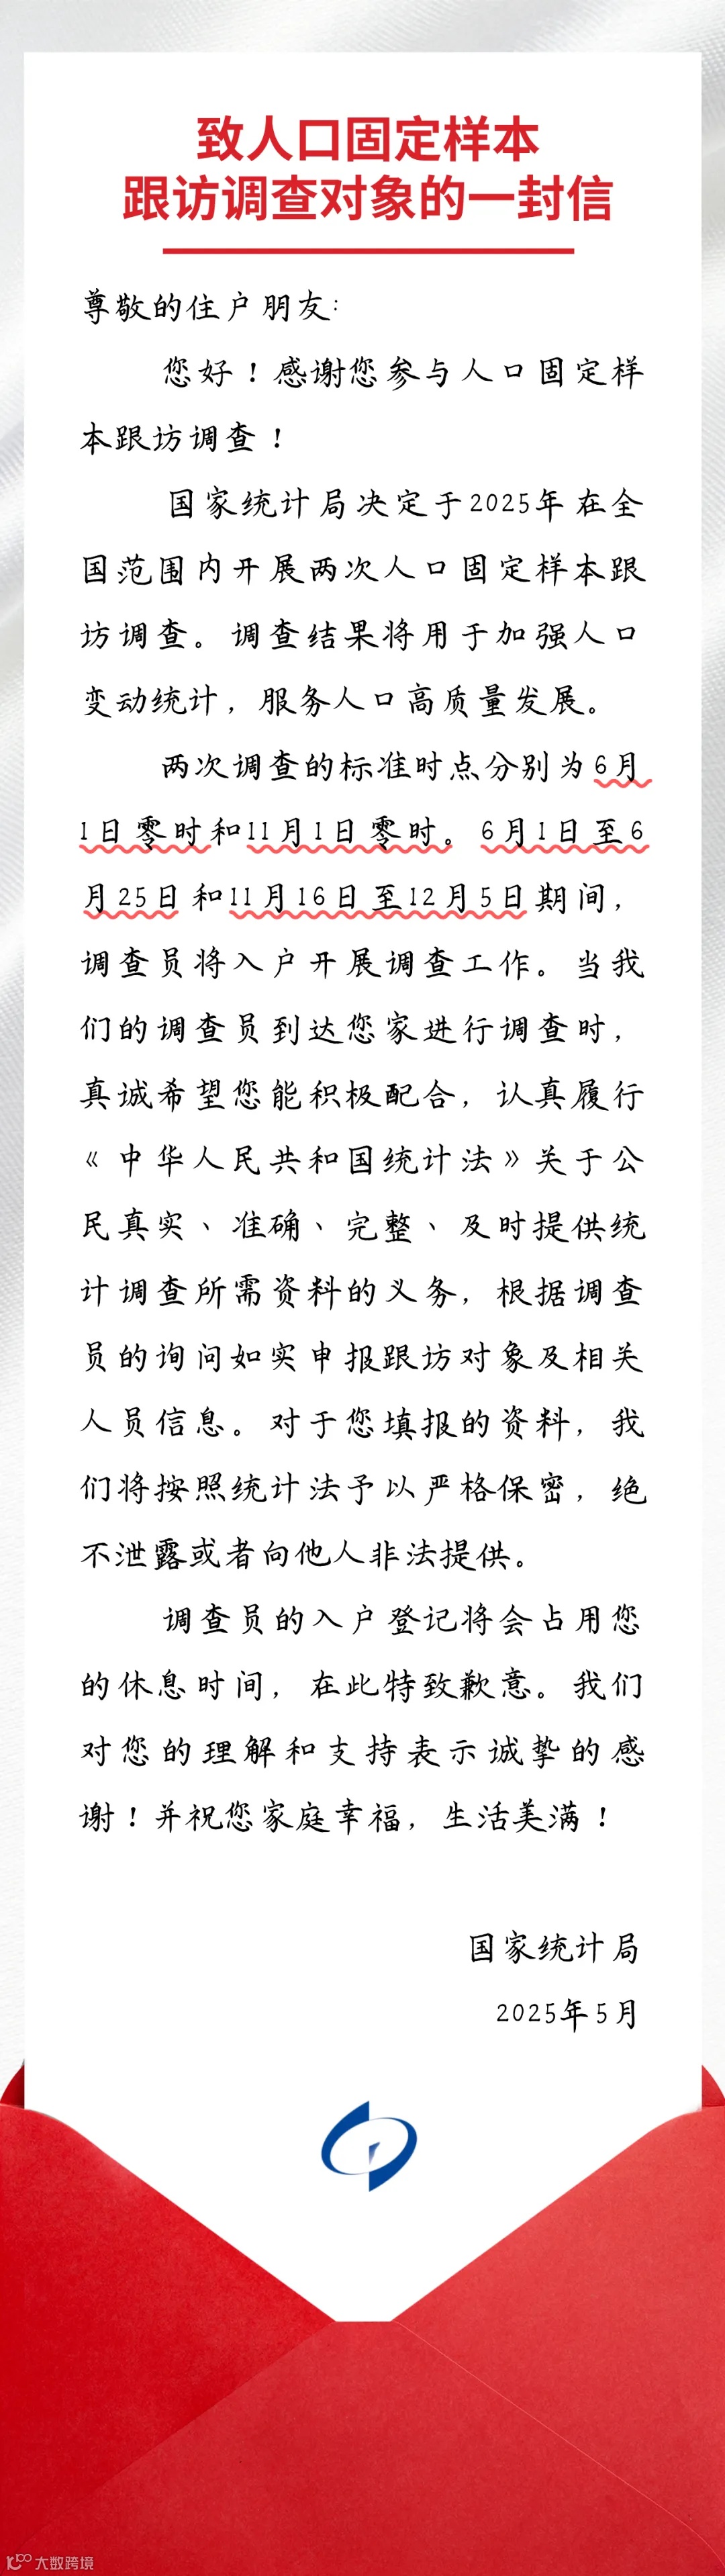 致人口固定样本
跟访调查对象的一封信
尊敬的住户朋友：
您好！感谢您参与人口固定样
本跟访调查！
国家统计局决定于2025年在全
国范围内开展两次人口固定样本跟
访调查。调查结果将用于加强人口
变动统计，服务人口高质量发展。
两次调查的标准时点分别为6月
1日零时和11月1日零时。6月1日至6
月25日和11月16日至12月5日期间，
调查员将入户开展调查工作。当我
们的调查员到达您家进行调查时，
真诚希望您能积极配合，认真履行
《中华人民共和国统计法》关于公
民真实、准确、完整、及时提供统
计调查所需资料的义务，根据调查
员的询问如实申报跟访对象及相关
人员信息。对于您填报的资料，我
们将按照统计法予以严格保密，绝
不泄露或者向他人非法提供。
调查员的入户登记将会占用您
的休息时间，在此特致歉意。我们
对您的理解和支持表示诚挚的感
谢！并祝您家庭幸福，生活美满！
国家统计局
2025年5月
大数跨境